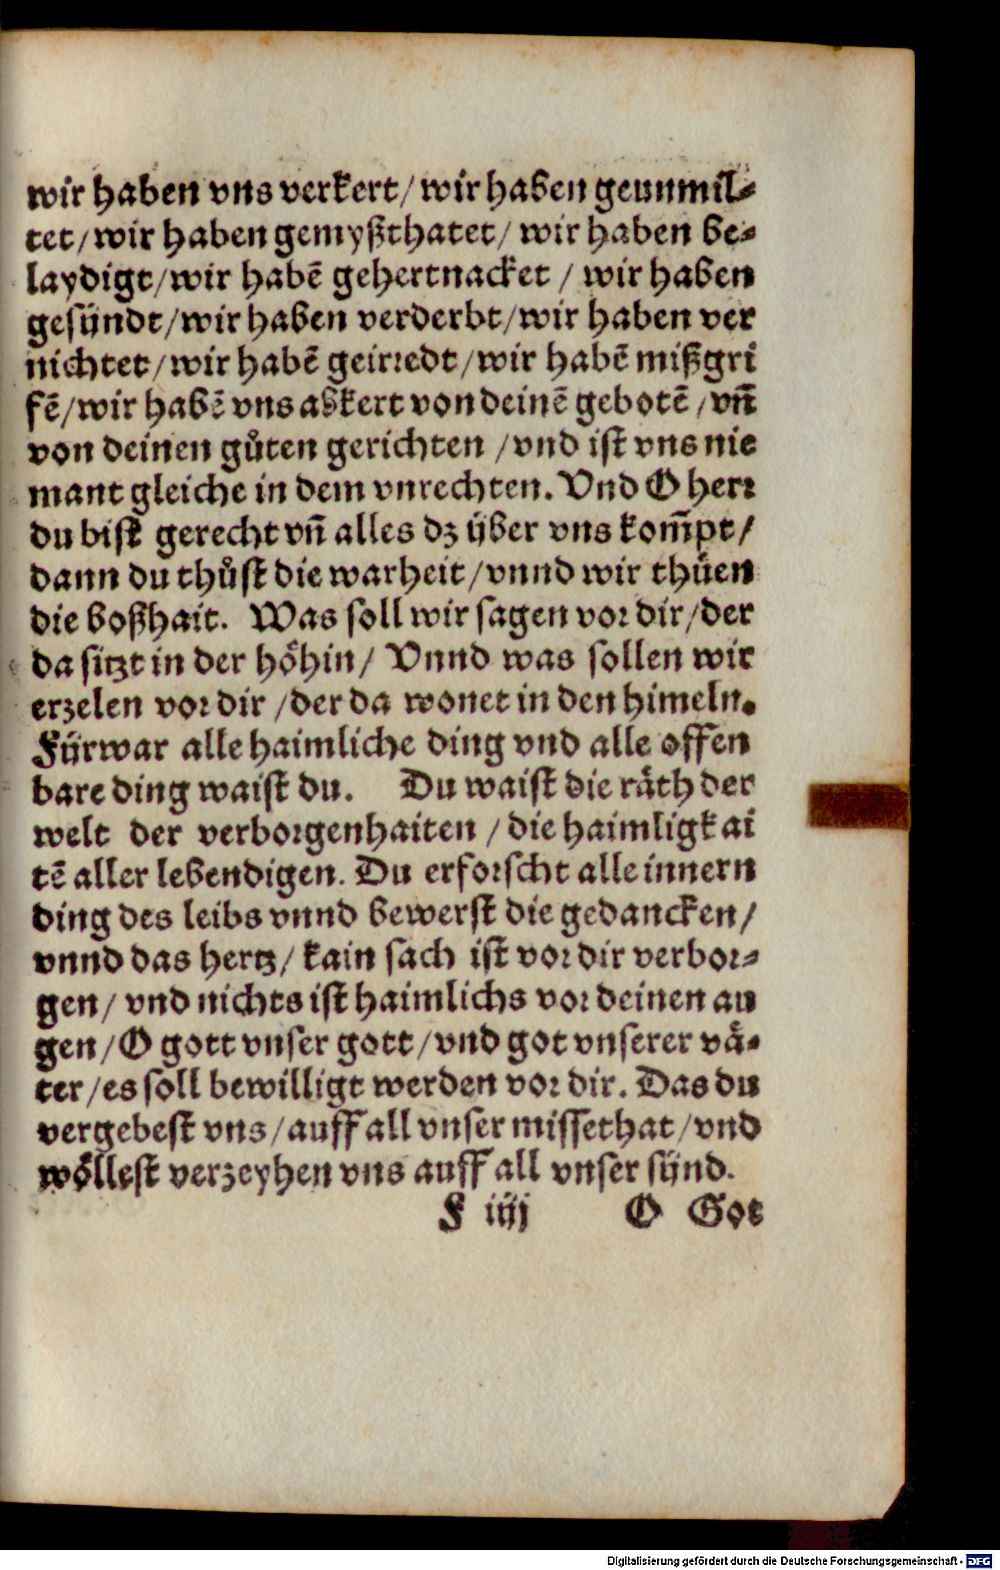 wir haben vns verkert/ wir haben geunmil-
tet/ wir haben gemyßthatet/ wir haben be-
laydigt/ wir habē gehertnacket / wir haben
gesündt/ wir haben verderbt/ wir haben ver
nichtet/ wir habē geirredt/ wir habē mißgri
fē/ wir habē vns abkert von deinē gebotē / vñ
von deinen gůten gerichten / vnd ist vns nie
mant gleiche in dem vnrechten. Vnd O herr
du bist gerecht vñ alles dz über vns kom̄pt/
dann du thůst die warheit/ vnnd wir thüen
die boßhait. Was soll wir sagen vor dir/ der
da sitzt in der höhin/ Vnnd was sollen wir
erzelen vor dir / der da wonet in den himeln.
Fürwar alle haimliche ding vnd alle offen
bare ding waist du. Du waist die räth der
welt der verborgenhaiten / die haimligkai
tē aller lebendigen. Du erforscht alle innern
ding des leibs vnnd bewerst die gedancken/
vnnd das hertz/ kain sach ist vor dir verbor-
gen/ vnd nichts ist haimlichs vor deinen au
gen/ O gott vnser gott/ vnd got vnserer vä-
ter/ es soll bewilligt werden vor dir. Das du
vergebest vns/ auff all vnser missethat/ vnd
wöllest verzeyhen vns auff all vnser sünd.
F iiij O Got
Digitalisierung gefördert durch die Deutsche Forschungsgemeinschaft - DFG